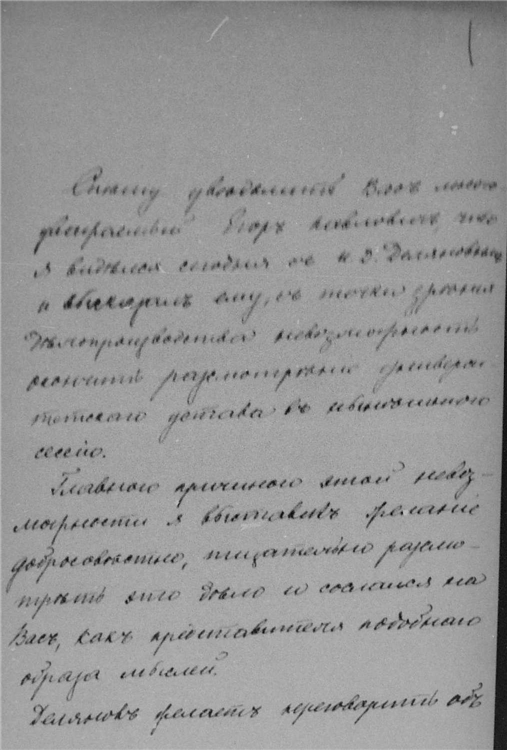 Спѣшу увѣдомить Васъ много-
уважаемый Егоръ Павловичъ, что
я видѣлся сегодня съ И. Д. Деляновымъ
и высказалъ ему, съ точки зрѣнія
дѣлопроизводства невозможность
окончить разсмотрѣніе универси-
тетскаго устава въ нынѣшнюю
сессію.
Главною причиною этой невоз-
можности я выставилъ желаніе
добросовѣстно, тщательно разсмо-
трѣть это дѣло и сослался на
Васъ, какъ представителя подобнаго
образа мыслей.
Деляновъ желаетъ переговорить объ